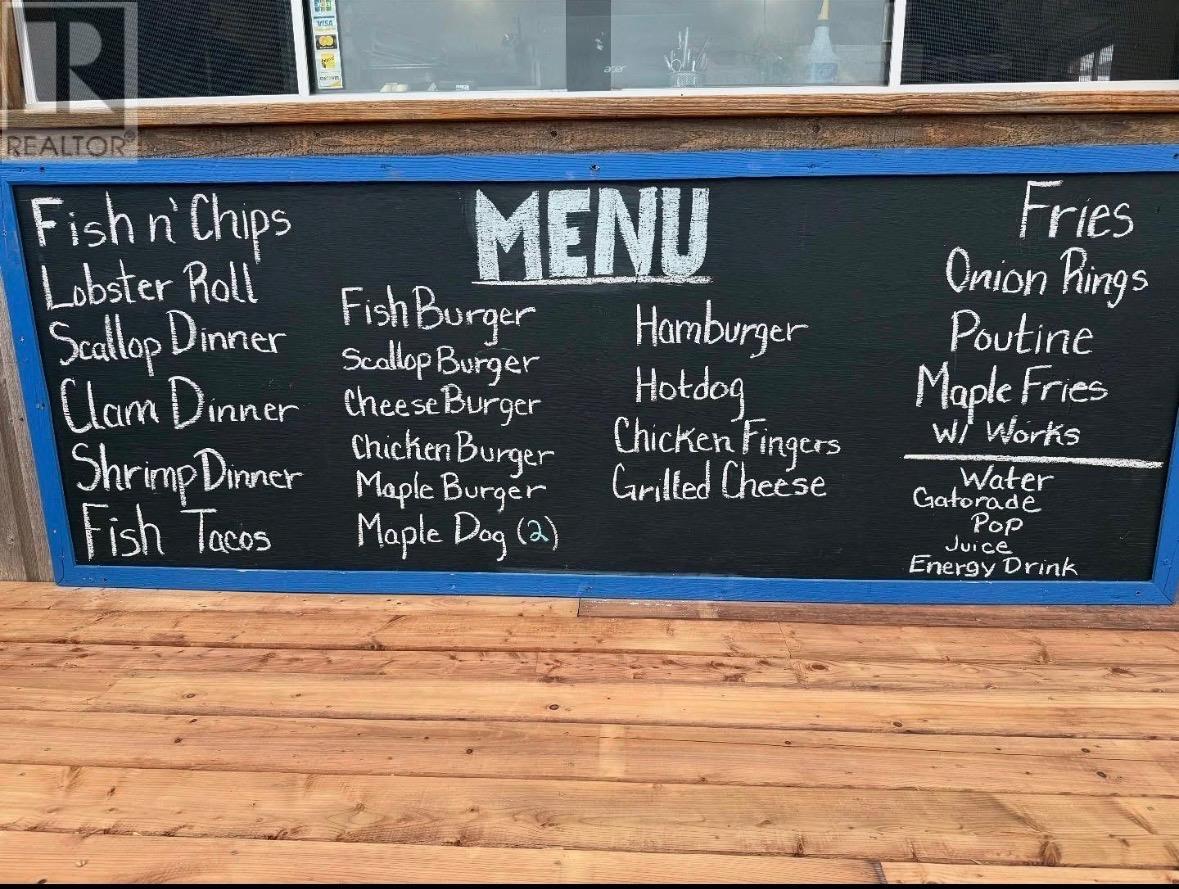 R
REALTOR
VISA
acer
MENU
Fish n' Chips
Lobster Roll
Scallop Dinner
Clam Dinner
Shrimp Dinner
Fish Tacos
Fish Burger
Scallop Burger
Cheese Burger
Chicken Burger
Maple Burger
Maple Dog (2)
Hamburger
Hotdog
Chicken Fingers
Grilled Cheese
Fries
Onion Rings
Poutine
Maple Fries
W/ Works
Water
Gatorade
Pop
Juice
Energy Drink